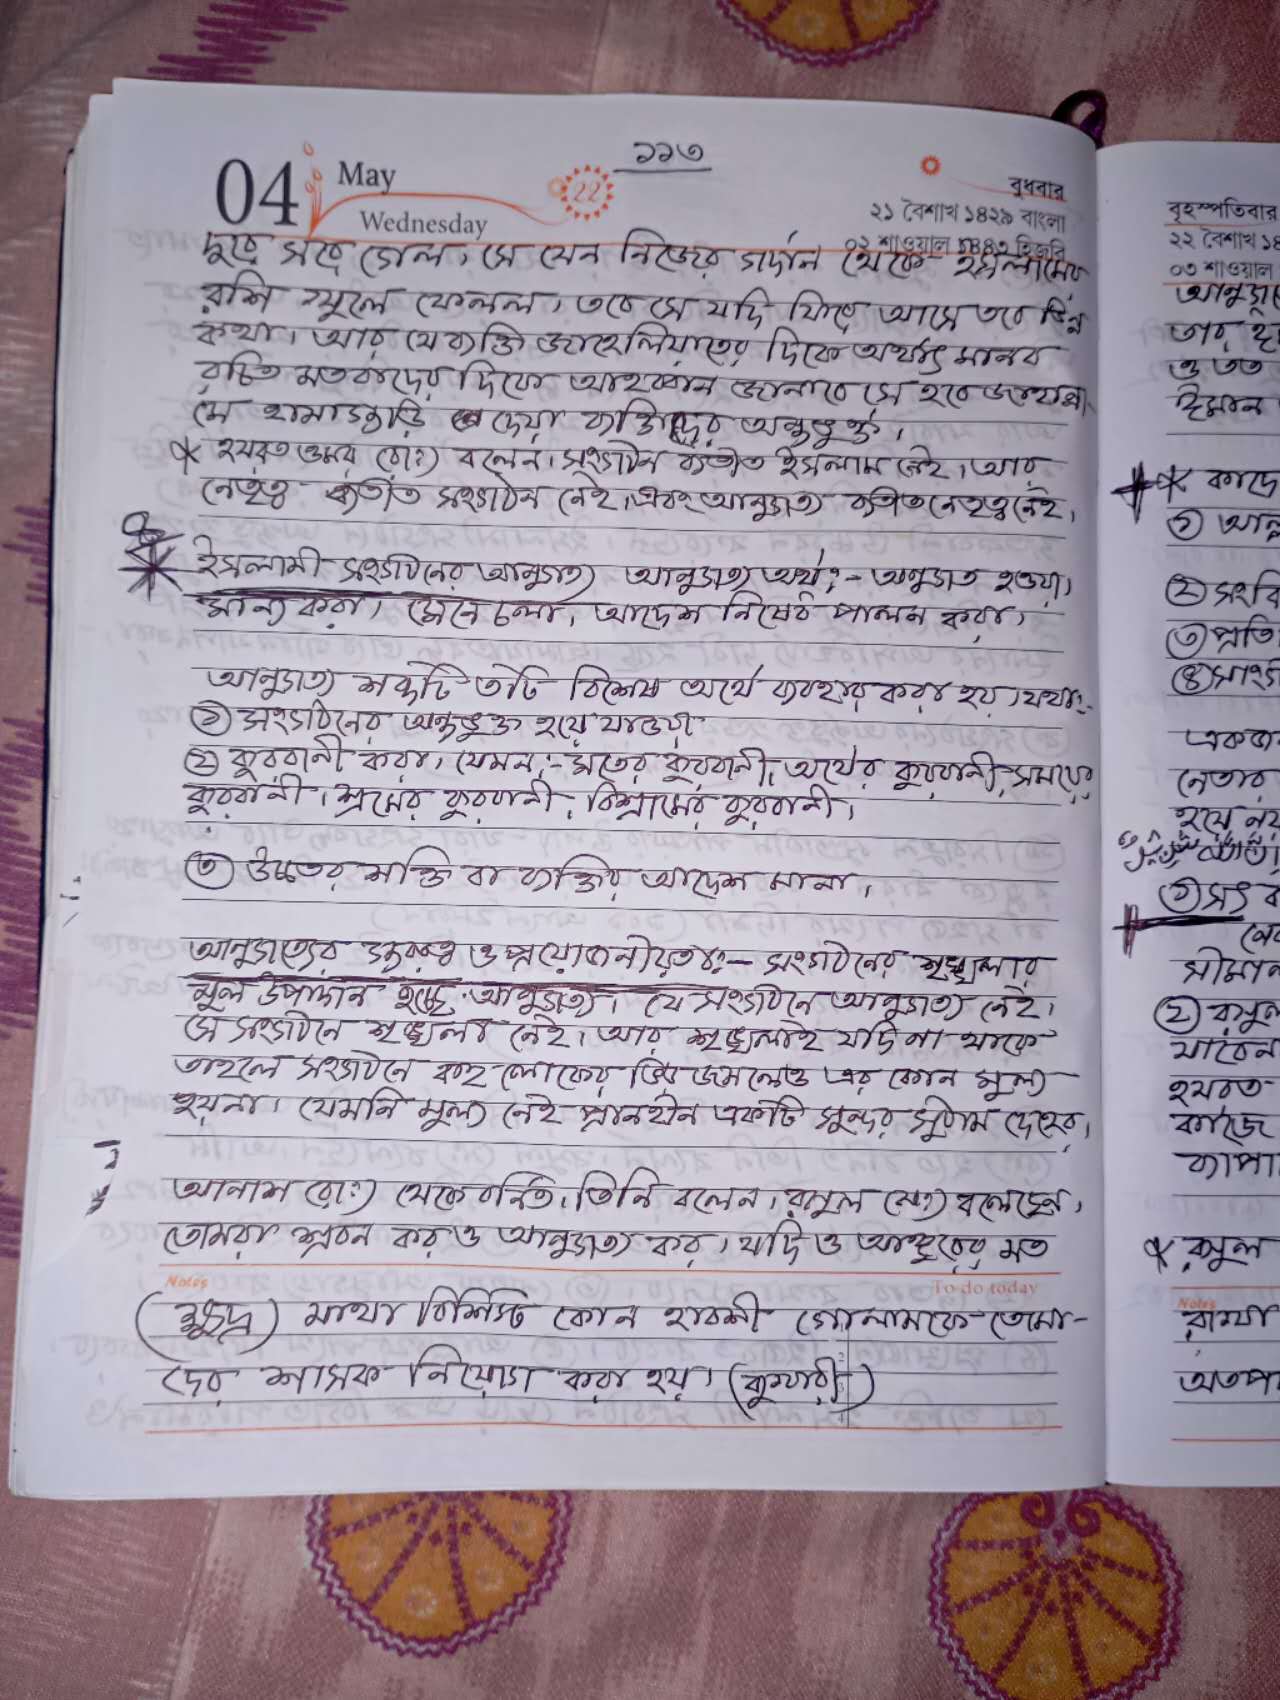 ১১৩
04 May
Wednesday
22
বুধবার
২১ বৈশাখ ১৪২৯ বাংলা
০২ শাওয়াল ১৪৪৩ হিজরি
দুরে সরে গেল, সে যেন নিজের গর্দান থেকে ইসলামের
রশি খুলে ফেলল, তবে সে যদি ফিরে আসে তবে ভিন্ন
কথা। আর যে ব্যক্তি জাহেলিয়াতের দিকে অর্থাৎ মানব
রচিত মতবাদের দিকে আহব্বান জানাবে সে হবে
সে হামাগুড়ি দেয়া ব্যক্তিদের অন্তভুক্ত।
* হযরত ওমর (রাঃ) বলেন। সংগঠন ব্যতীত ইসলাম নেই। আর
নেতৃত্ব ব্যতিত সংগঠন নেই। এবং আনুগত্য ব্যতিত নেতৃত্ব নেই।
* ইসলামী সংগঠনের আনুগত্য আনুগত্য অর্থঃ- অনুগত হওয়া।
মান্য করা। মেনে চলা। আদেশ নিষেধ পালন করা।
আনুগত্য শব্দটি ৩টি বিশেষ অর্থে ব্যবহার করা হয়। যথাঃ-
① সংগঠনের অন্তভুক্ত হয়ে যাওয়া
② কুরবানী করা। যেমন:- মতের কুরবানী, অর্থের কুরবানী, সময়ের
কুরবানী। শ্রমের কুরবানী, বিশ্রামের কুরবানী।
③ উচ্চতর শক্তি বা ব্যক্তির আদেশ মানা।
আনুগত্যের গুরুত্ব ও প্রয়োজনীয়তাঃ- সংগঠনের শৃঙ্খলার
মূল উপাদান হচ্ছে আনুগত্য। যে সংগঠনে আনুগত্য নেই।
সে সংগঠনে শৃঙ্খলা নেই। আর শৃঙ্খলাই যদি না থাকে
তাহলে সংগঠনে বহু লোকের ভিড় জমলেও এর কোন মূল্য
হয়না। যেমনি মূল্য নেই প্রানহীন একটি সুন্দর সুঠাম দেহের।
আনাস (রাঃ) থেকে বর্নিত। তিনি বলেন। রাসুল (সাঃ) বলেছেন।
তোমরা শ্রবন কর ও আনুগত্য কর। যদি ও আঙ্গুরের মত
Notes
To do today
(ক্ষুদ্র) মাথা বিশিস্ট কোন হাবশী গোলামকে তোমা-
দের শাসক নিয়োগ করা হয়। (বুখারী)
বৃহস্পতিবার
২২ বৈশাখ ১৪
০৩ শাওয়াল
আনুগ
তার
ও তত
ঈমান
* কাদে
① আল্ল
② সংবি
③ প্রতি
④ সাংগ
একজ
নেতার
হয়ে
① সৎ
সীমান
② রাসুল
যাবেন
হযরত
কাজে
ব্যাপা
* রাসুল
Notes
রাখা
অতপ